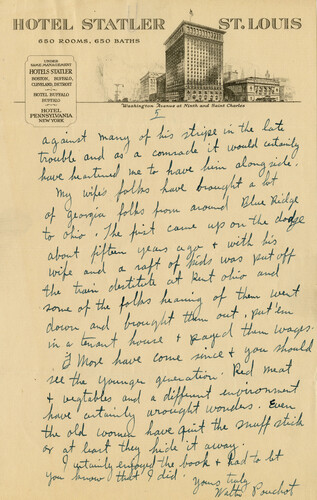 HOTEL STATLER ST. LOUIS
650 ROOMS, 650 BATHS
UNDER
SAME MANAGEMENT
HOTELS STATLER
BOSTON, BUFFALO,
CLEVELAND, DETROIT
HOTEL BUFFALO
BUFFALO
HOTEL
PENNSYLVANIA
NEW YORK
Washington Avenue at Ninth and Saint Charles
against many of his stripe in the late
trouble and as a comrade it would certainly
have heartened me to have him alongside.
My wife's folks have brought a lot
of georgia folks from around Blue Ridge
to Ohio. The first came up on the dodge
about fifteen years ago & with his
wife and a raft of kids was put off
the train destitute at Kent Ohio and
some of the folks hearing of them went
down and brought them out, put 'em
in a tenant house & payed them wages.
More have come since & you should
see the younger generation. Red meat
& vegtables and a different environment
have certainly wrought wonders. Even
the old women have quit the snuff stick
or at least they hide it away.
I certainly enjoyed the book & had to let
you know that I did.
Yours truly,
Walter